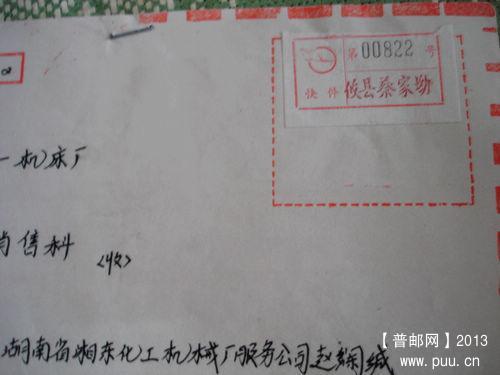 第 00822 号
快件 攸县蔡家坳
一机床厂
销售科
(收)
湖南省湘东化工机械厂服务公司赵 缄
【普邮网】2013
www.puu.cn